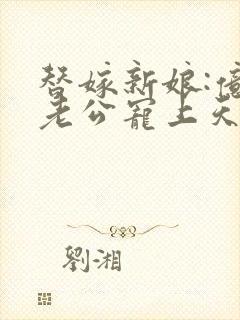 替嫁新娘:億
老公寵上天
劉湘